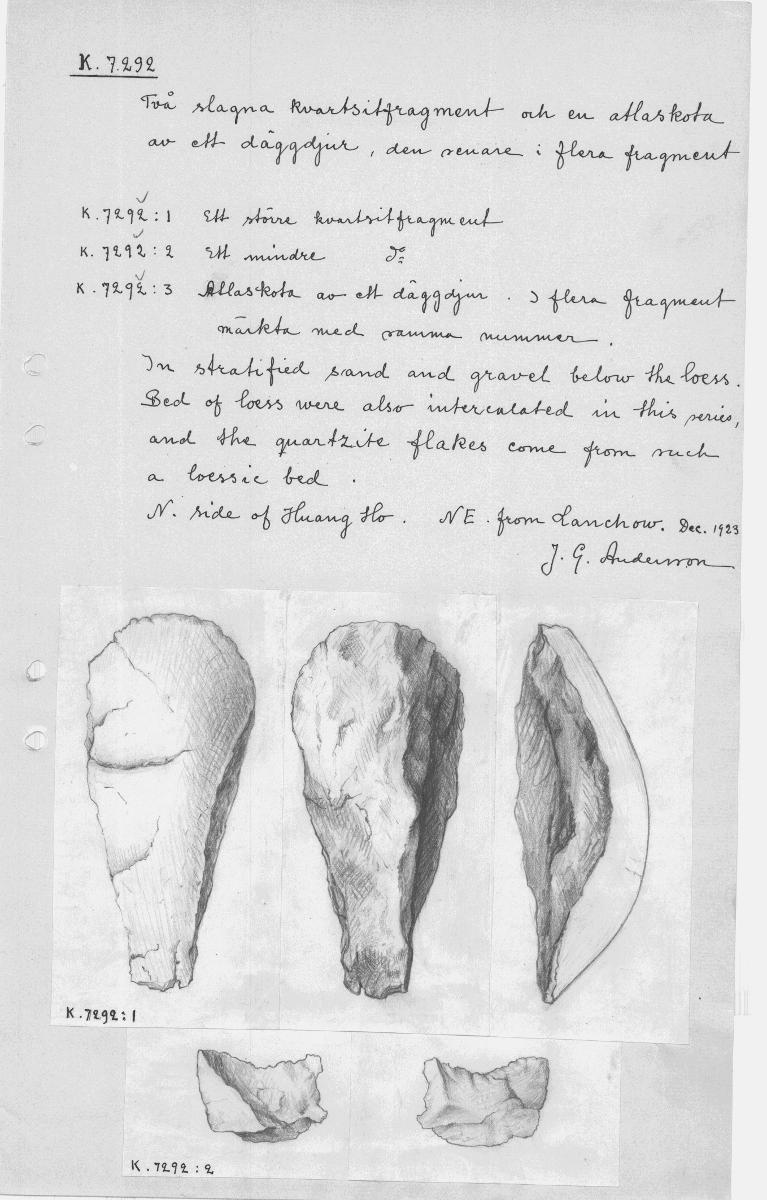 K. 7292
Två slagna kvartsitfragment och en atlaskota
av ett däggdjur, den senare i flera fragment
K. 7292:1 Ett större kvartsitfragment
K. 7292:2 Ett mindre d:o
K. 7292:3 Atlaskota av ett däggdjur. I flera fragment
märkta med samma nummer.
In stratified sand and gravel below the loess.
Bed of loess were also intercalated in this series,
and the quartzite flakes come from such
a loessic bed.
N. side of Huang Ho. NE. from Lanchow. Dec. 1923
J. G. Andersson
K.7292:1
K.7292:2